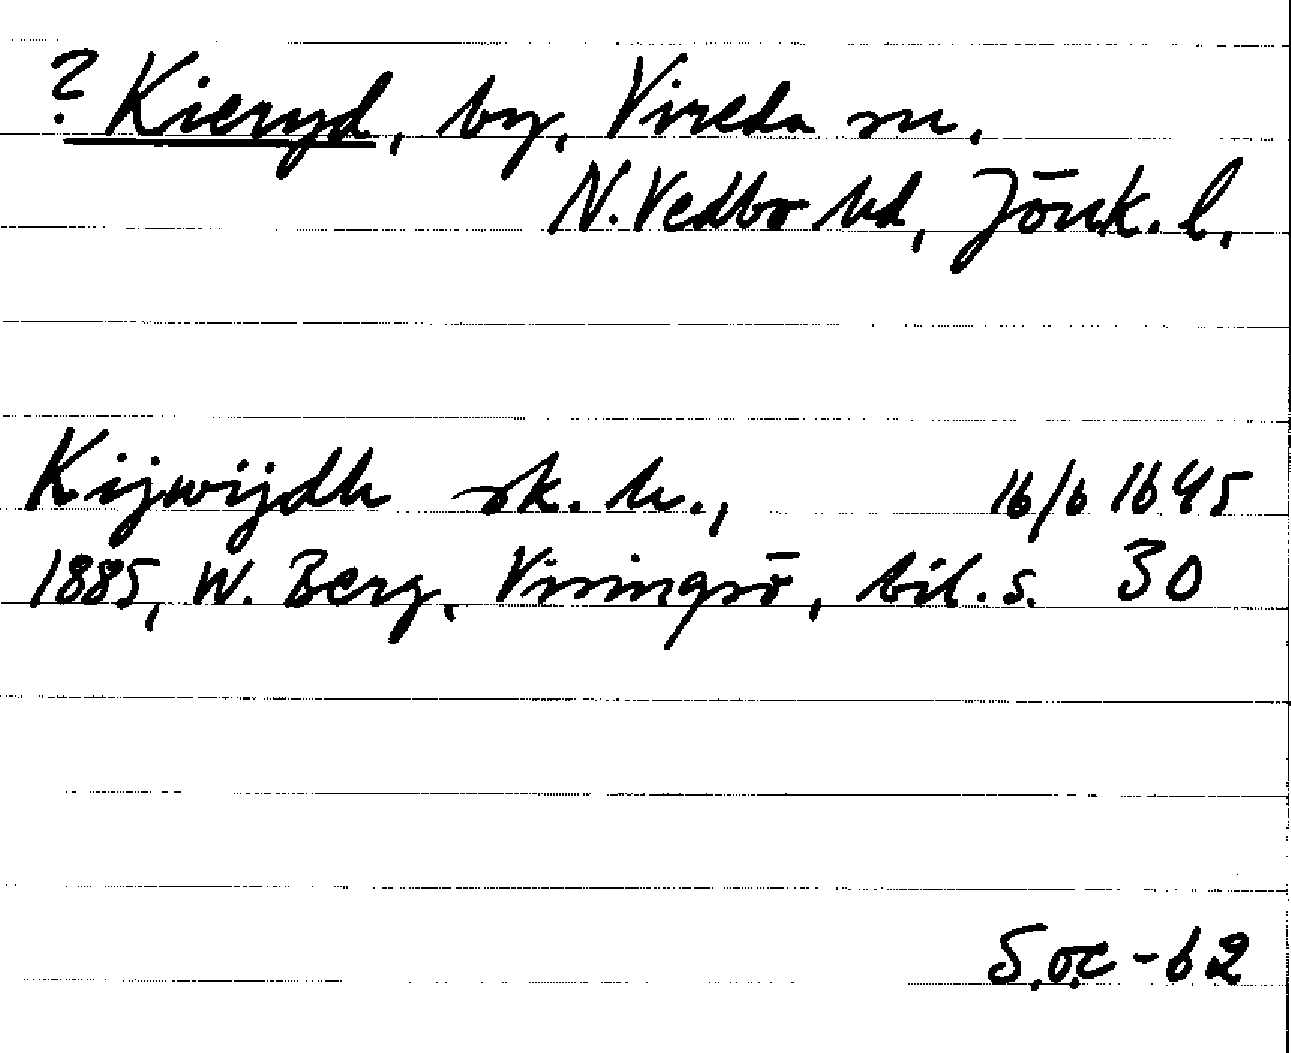 ? Kieryd, by, Vireda sn.
N. Vedbo hd, Jönk. l.
Kijwijdh sk. h., 16/6 1645
1885, W. Berg, Visingsö, bil. s. 30
S.o.c -62